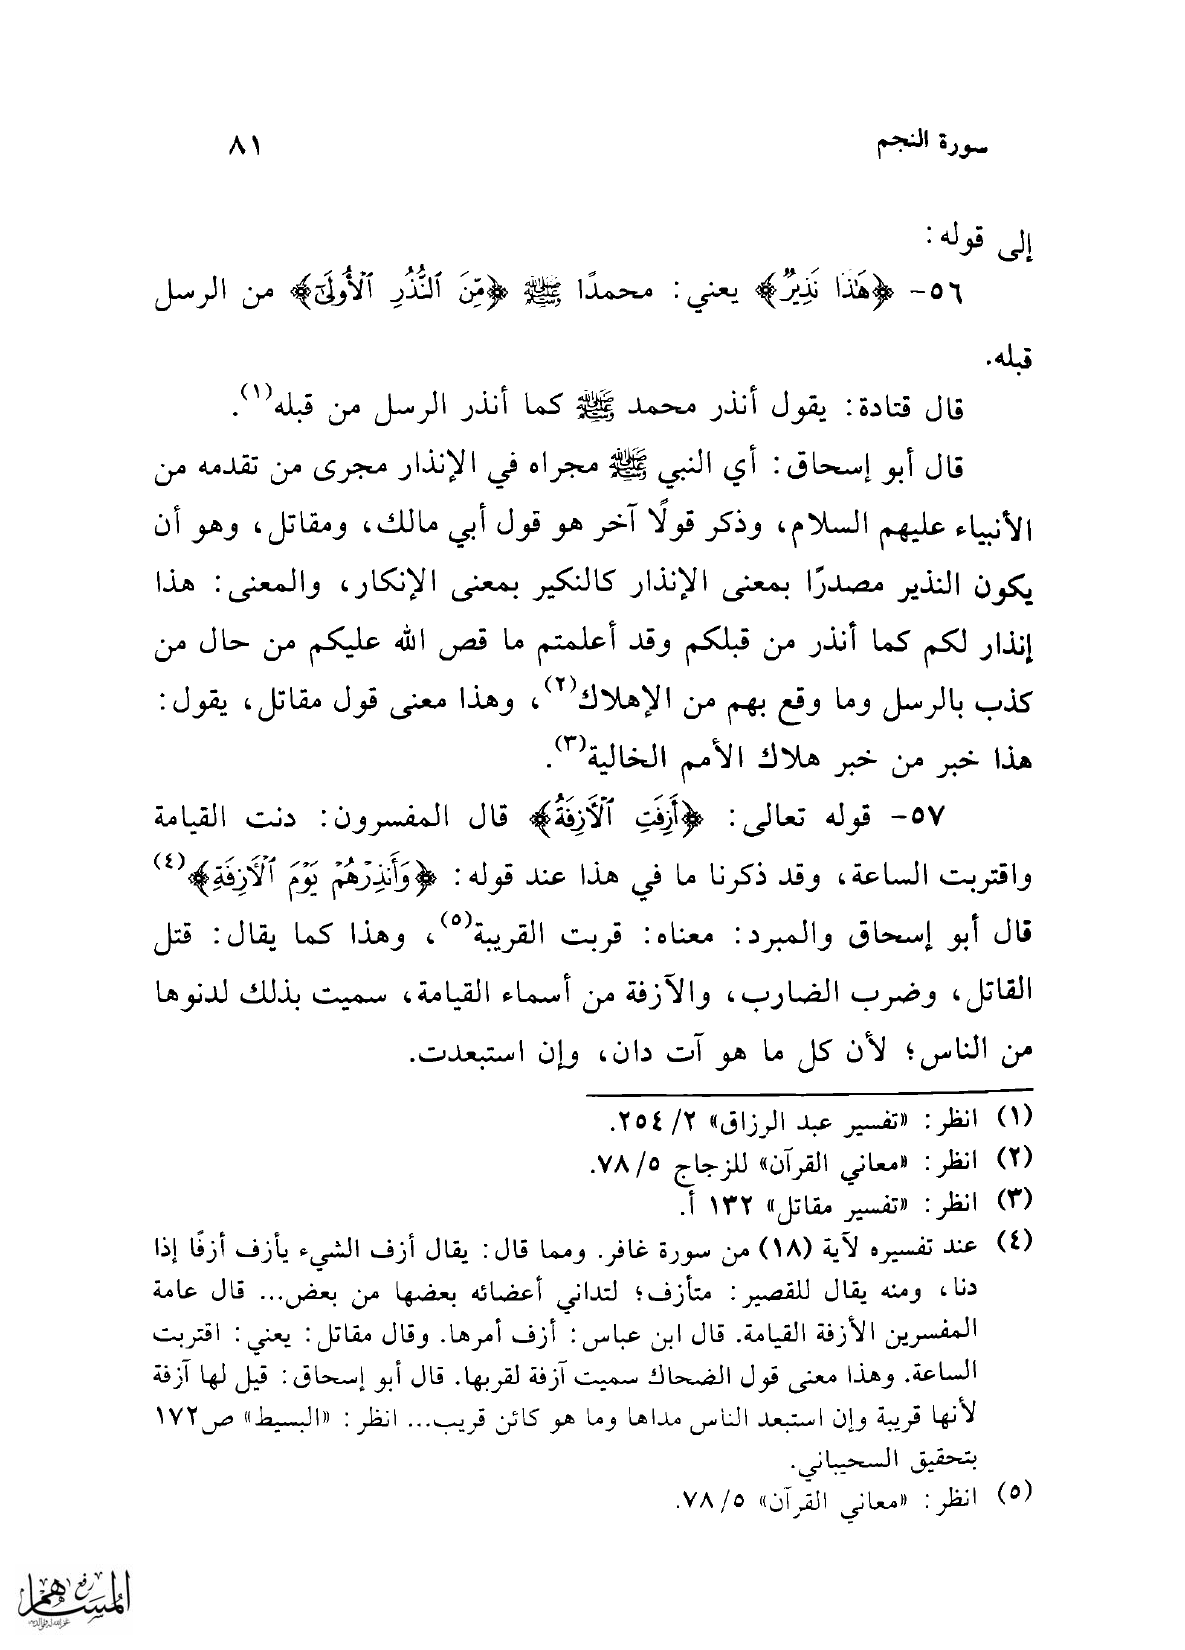 سورة النجم ٨١
إلى قوله:
٥٦- ﴿هَٰذَا نَذِيرٌ﴾ يعني: محمدًا ﷺ ﴿مِّنَ ٱلنُّذُرِ ٱلْأُولَىٰٓ﴾ من الرسل
قبله.
قال قتادة: يقول أنذر محمد ﷺ كما أنذر الرسل من قبله(١).
قال أبو إسحاق: أي النبي ﷺ مجراه في الإنذار مجرى من تقدمه من
الأنبياء عليهم السلام، وذكر قولًا آخر هو قول أبي مالك، ومقاتل، وهو أن
يكون النذير مصدرًا بمعنى الإنذار كالنكير بمعنى الإنكار، والمعنى: هذا
إنذار لكم كما أنذر من قبلكم وقد أعلمتم ما قص الله عليكم من حال من
كذب بالرسل وما وقع بهم من الإهلاك(٢)، وهذا معنى قول مقاتل، يقول:
هذا خبر من خبر هلاك الأمم الخالية(٣).
٥٧- قوله تعالى: ﴿أَزِفَتِ ٱلْأَزِفَةُ﴾ قال المفسرون: دنت القيامة
واقتربت الساعة، وقد ذكرنا ما في هذا عند قوله: ﴿وَأَنذِرْهُمْ يَوْمَ ٱلْأَزِفَةِ﴾(٤)
قال أبو إسحاق والمبرد: معناه: قربت القريبة(٥)، وهذا كما يقال: قتل
القاتل، وضرب الضارب، والآزفة من أسماء القيامة، سميت بذلك لدنوها
من الناس؛ لأن كل ما هو آت دان، وإن استبعدت.
(١) انظر: «تفسير عبد الرزاق» ٢/ ٢٥٤.
(٢) انظر: «معاني القرآن» للزجاج ٥/ ٧٨.
(٣) انظر: «تفسير مقاتل» ١٣٢ أ.
(٤) عند تفسيره لآية (١٨) من سورة غافر. ومما قال: يقال أزف الشيء يأزف أزفًا إذا
دنا، ومنه يقال للقصير: متأزف؛ لتداني أعضائه بعضها من بعض... قال عامة
المفسرين الأزفة القيامة. قال ابن عباس: أزف أمرها. وقال مقاتل: يعني: اقتربت
الساعة. وهذا معنى قول الضحاك سميت آزفة لقربها. قال أبو إسحاق: قيل لها آزفة
لأنها قريبة وإن استبعد الناس مداها وما هو كائن قريب... انظر: «البسيط» ص١٧٢
بتحقيق السحيباني.
(٥) انظر: «معاني القرآن» ٥/ ٧٨.
رفع
المساهم